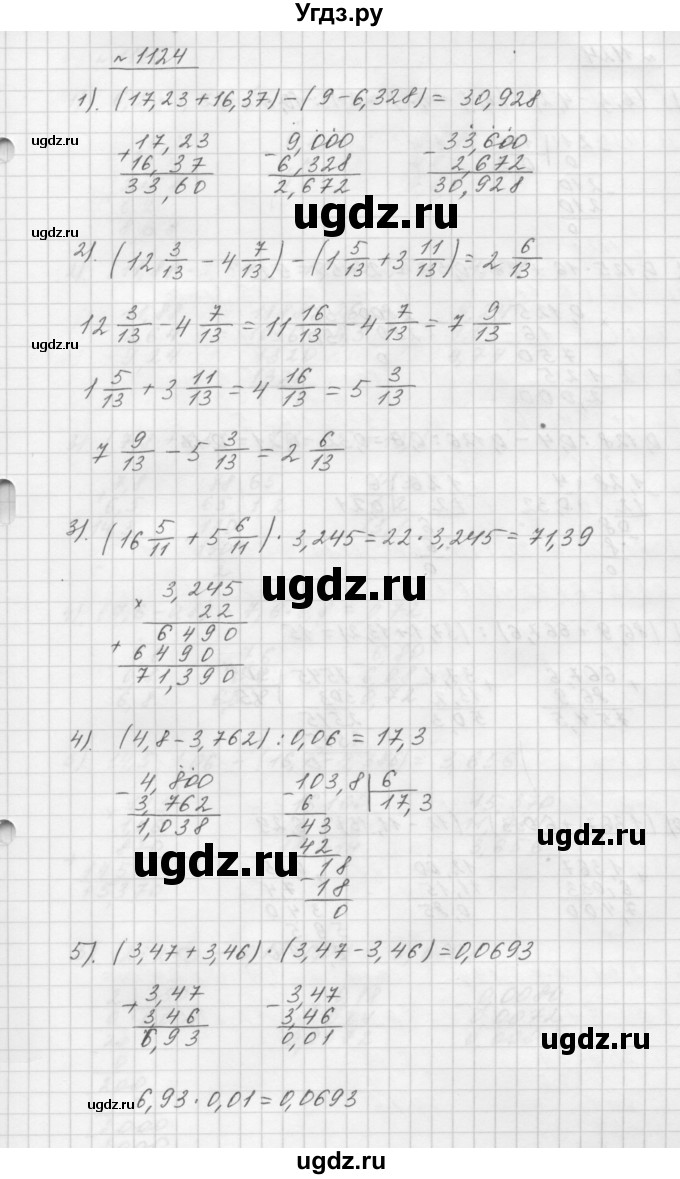 Угдз.ру
№ 1124
1). (17,23+16,37)-(9-6,328)= 30,928
ugdz.ru
+17,23
16,37
33,60
-9,000
6,328
2,672
-33,600
2,672
30,928
ugdz.ru
ugdz.ru
2). (12 3/13 - 4 7/13) - (1 5/13 + 3 11/13) = 2 6/13
12 3/13 - 4 7/13 = 11 16/13 - 4 7/13 = 7 9/13
ugdz.ru
1 5/13 + 3 11/13 = 4 16/13 = 5 3/13
7 9/13 - 5 3/13 = 2 6/13
3). (16 5/11 + 5 6/11) · 3,245 = 22 · 3,245 = 71,39
ugdz.ru
× 3,245
22
+ 6490
6490
71,390
4). (4,8-3,762) : 0,06 = 17,3
-4,800
3,762
1,038
-103,8 | 6
6 17,3
-43
42
-18
18
0
ugdz.ru
ugdz.ru
5). (3,47+3,46) · (3,47-3,46) = 0,0693
+3,47
3,46
6,93
-3,47
3,46
0,01
ugdz.ru
ugdz.ru
6,93 · 0,01 = 0,0693
ugdz.ru